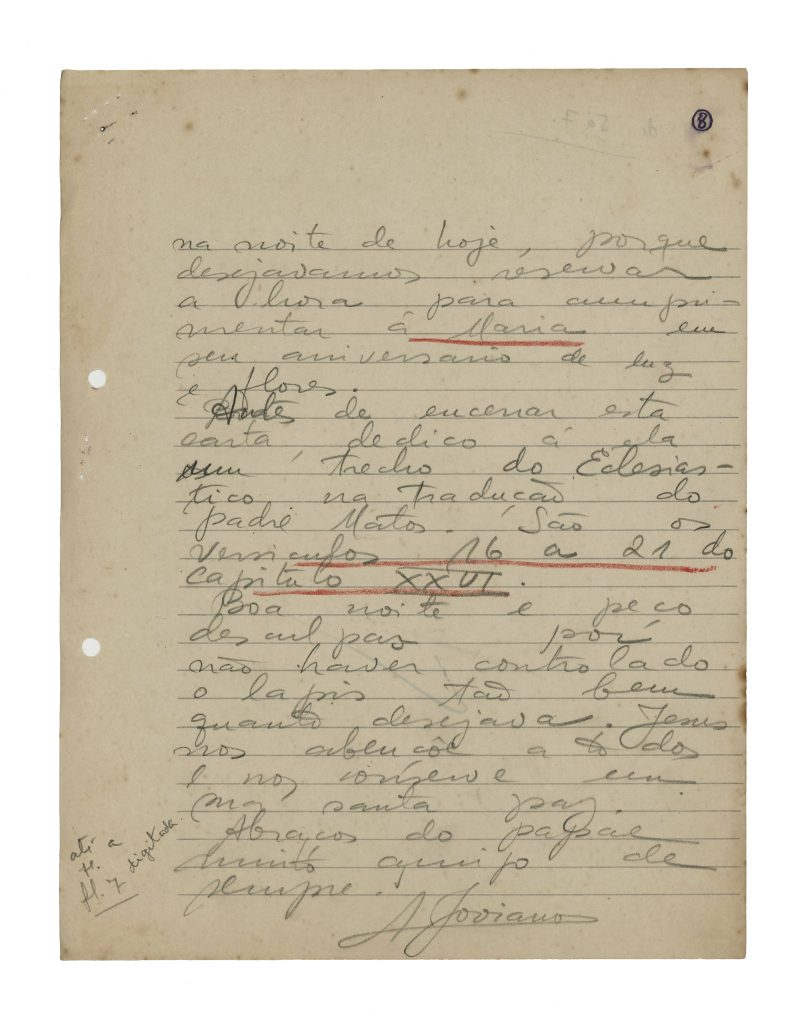 8
na noite de hoje, porque
desejavamos reservar
a hora para cumpri-
mentar á Maria em
seu aniversario de luz
e flores.
Antes de encerrar esta
carta, dedico á ela
um trecho do Eclesias-
tico na tradução do
padre Matos. São os
versiculos 16 a 21 do
capitulo XXVI.
Boa noite e peço
desculpas por
não haver controlado
o lapis tão bem
quanto desejava. Jesus
nos abençôe a todos
e nos conserve em
sua santa paz.
Abraços do papae
muito amigo de
sempre.
A Joviano
até
a
fl. 7 digitada.